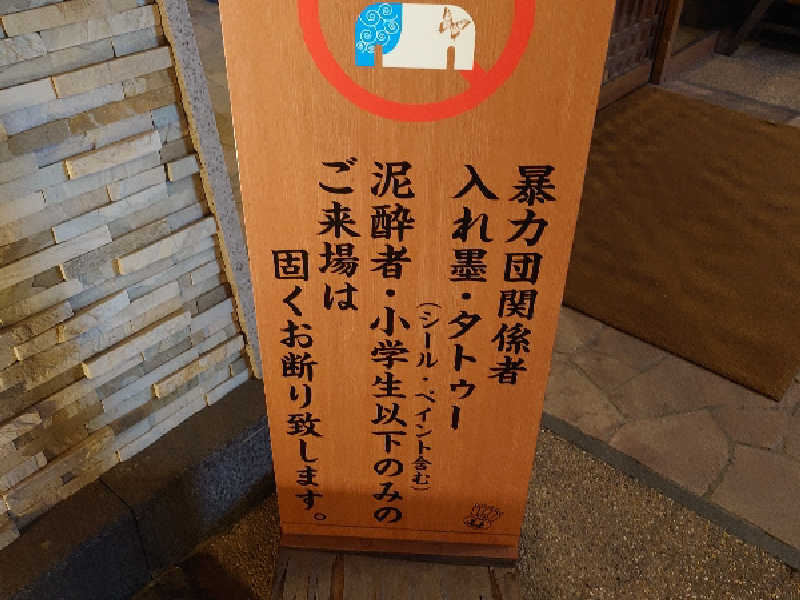 暴力団関係者
入れ墨・タトゥー
（シール・ペイント含む）
泥酔者・小学生以下のみの
ご来場は
固くお断り致します。